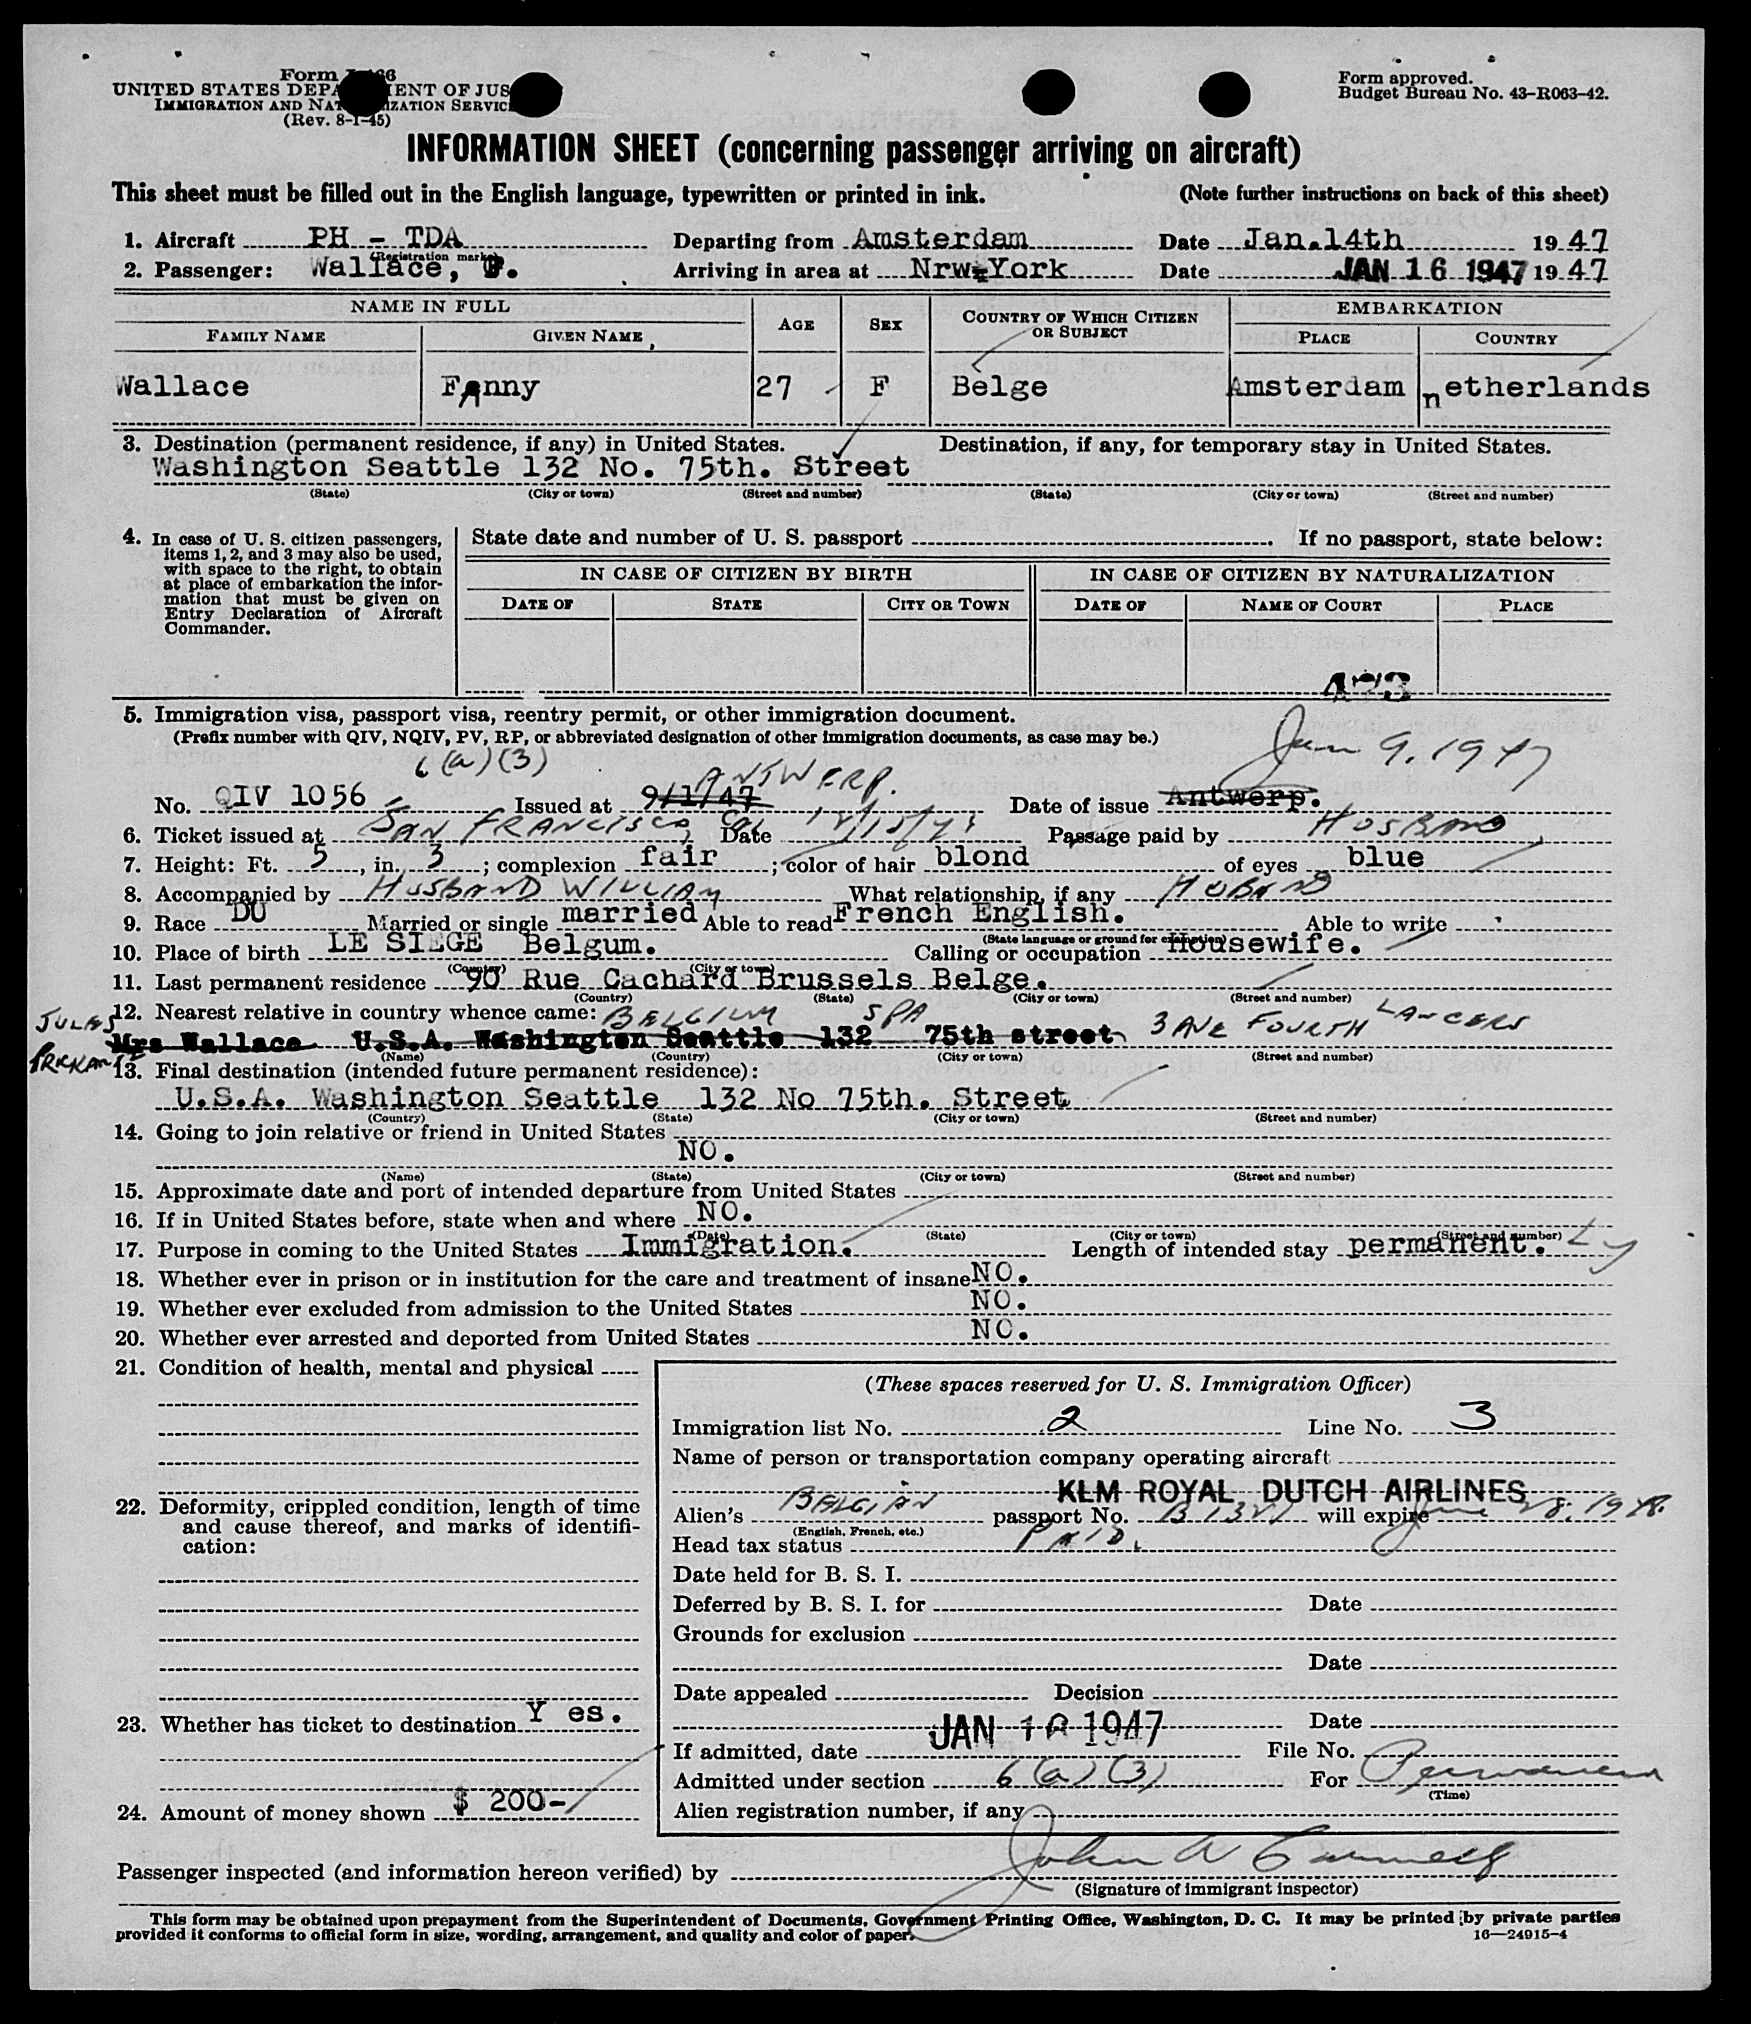 Form I-466
UNITED STATES DEPARTMENT OF JUSTICE
IMMIGRATION AND NATURALIZATION SERVICE
(Rev. 8-1-45)
Form approved.
Budget Bureau No. 43-R063-42.
INFORMATION SHEET (concerning passenger arriving on aircraft)
This sheet must be filled out in the English language, typewritten or printed in ink. (Note further instructions on back of this sheet)
1. Aircraft PH - TDA Departing from Amsterdam Date Jan.14th 19 47
(Registration marks)
2. Passenger: Wallace, F. Arriving in area at Nrw-York Date JAN 16 1947 19 47
NAME IN FULL AGE SEX COUNTRY OF WHICH CITIZEN OR SUBJECT EMBARKATION
FAMILY NAME GIVEN NAME PLACE COUNTRY
Wallace FAnny 27 F Belge Amsterdam netherlands
3. Destination (permanent residence, if any) in United States. Destination, if any, for temporary stay in United States.
Washington Seattle 132 No. 75th. Street
(State) (City or town) (Street and number) (State) (City or town) (Street and number)
4. In case of U. S. citizen passengers, items 1, 2, and 3 may also be used, with space to the right, to obtain at place of embarkation the information that must be given on Entry Declaration of Aircraft Commander.
State date and number of U. S. passport . If no passport, state below:
IN CASE OF CITIZEN BY BIRTH IN CASE OF CITIZEN BY NATURALIZATION
DATE OF STATE CITY OR TOWN DATE OF NAME OF COURT PLACE
5. Immigration visa, passport visa, reentry permit, or other immigration document.
(Prefix number with QIV, NQIV, PV, RP, or abbreviated designation of other immigration documents, as case may be.)
6(a)(3) ANTWERP. Jan 9. 1947
No. QIV 1056 Issued at 9/1/47 Date of issue Antwerp.
6. Ticket issued at SAN FRANCISCO, Cal Date Passage paid by HUSBAND
7. Height: Ft. 5, in. 3; complexion fair; color of hair blond of eyes blue
8. Accompanied by HUSBAND WILLIAM What relationship, if any HUBAND
9. Race DU Married or single married Able to read French English. Able to write
(State language or ground for exemption)
10. Place of birth LE SIEGE Belgum. Calling or occupation Housewife.
(Country) (City or town)
11. Last permanent residence 90 Rue Cachard Brussels Belge.
(Country) (State) (City or town) (Street and number)
12. Nearest relative in country whence came: BELGIUM SPA 3 AVE FOURTH LANCERS
JULES
Mrs Wallace U.S.A. Washington Seattle 132 75th street
(Name) (Country) (City or town) (Street and number)
13. Final destination (intended future permanent residence):
U.S.A. Washington Seattle 132 No 75th. Street
(Country) (State) (City or town) (Street and number)
14. Going to join relative or friend in United States
NO.
(Name) (State) (City or town) (Street and number)
15. Approximate date and port of intended departure from United States
16. If in United States before, state when and where NO.
(Date) (State) (City or town) (Street and number)
17. Purpose in coming to the United States Immigration. Length of intended stay permanent. Ly
18. Whether ever in prison or in institution for the care and treatment of insane NO.
19. Whether ever excluded from admission to the United States NO.
20. Whether ever arrested and deported from United States NO.
21. Condition of health, mental and physical
22. Deformity, crippled condition, length of time and cause thereof, and marks of identification:
23. Whether has ticket to destination Y es.
24. Amount of money shown $ 200-
(These spaces reserved for U. S. Immigration Officer)
Immigration list No. 2 Line No. 3
Name of person or transportation company operating aircraft
KLM ROYAL DUTCH AIRLINES
Alien's BELGIAN passport No. will expire June 28. 1948.
(English, French, etc.)
Head tax status PAID.
Date held for B. S. I.
Deferred by B. S. I. for Date
Grounds for exclusion
Date
Date appealed Decision
Date
If admitted, date JAN 16 1947 File No.
Admitted under section 6(a)(3) For Permanent
(Time)
Alien registration number, if any
Passenger inspected (and information hereon verified) by John W
(Signature of immigrant inspector)
This form may be obtained upon prepayment from the Superintendent of Documents, Government Printing Office, Washington, D. C. It may be printed by private parties
provided it conforms to official form in size, wording, arrangement, and quality and color of paper.
16—24915-4